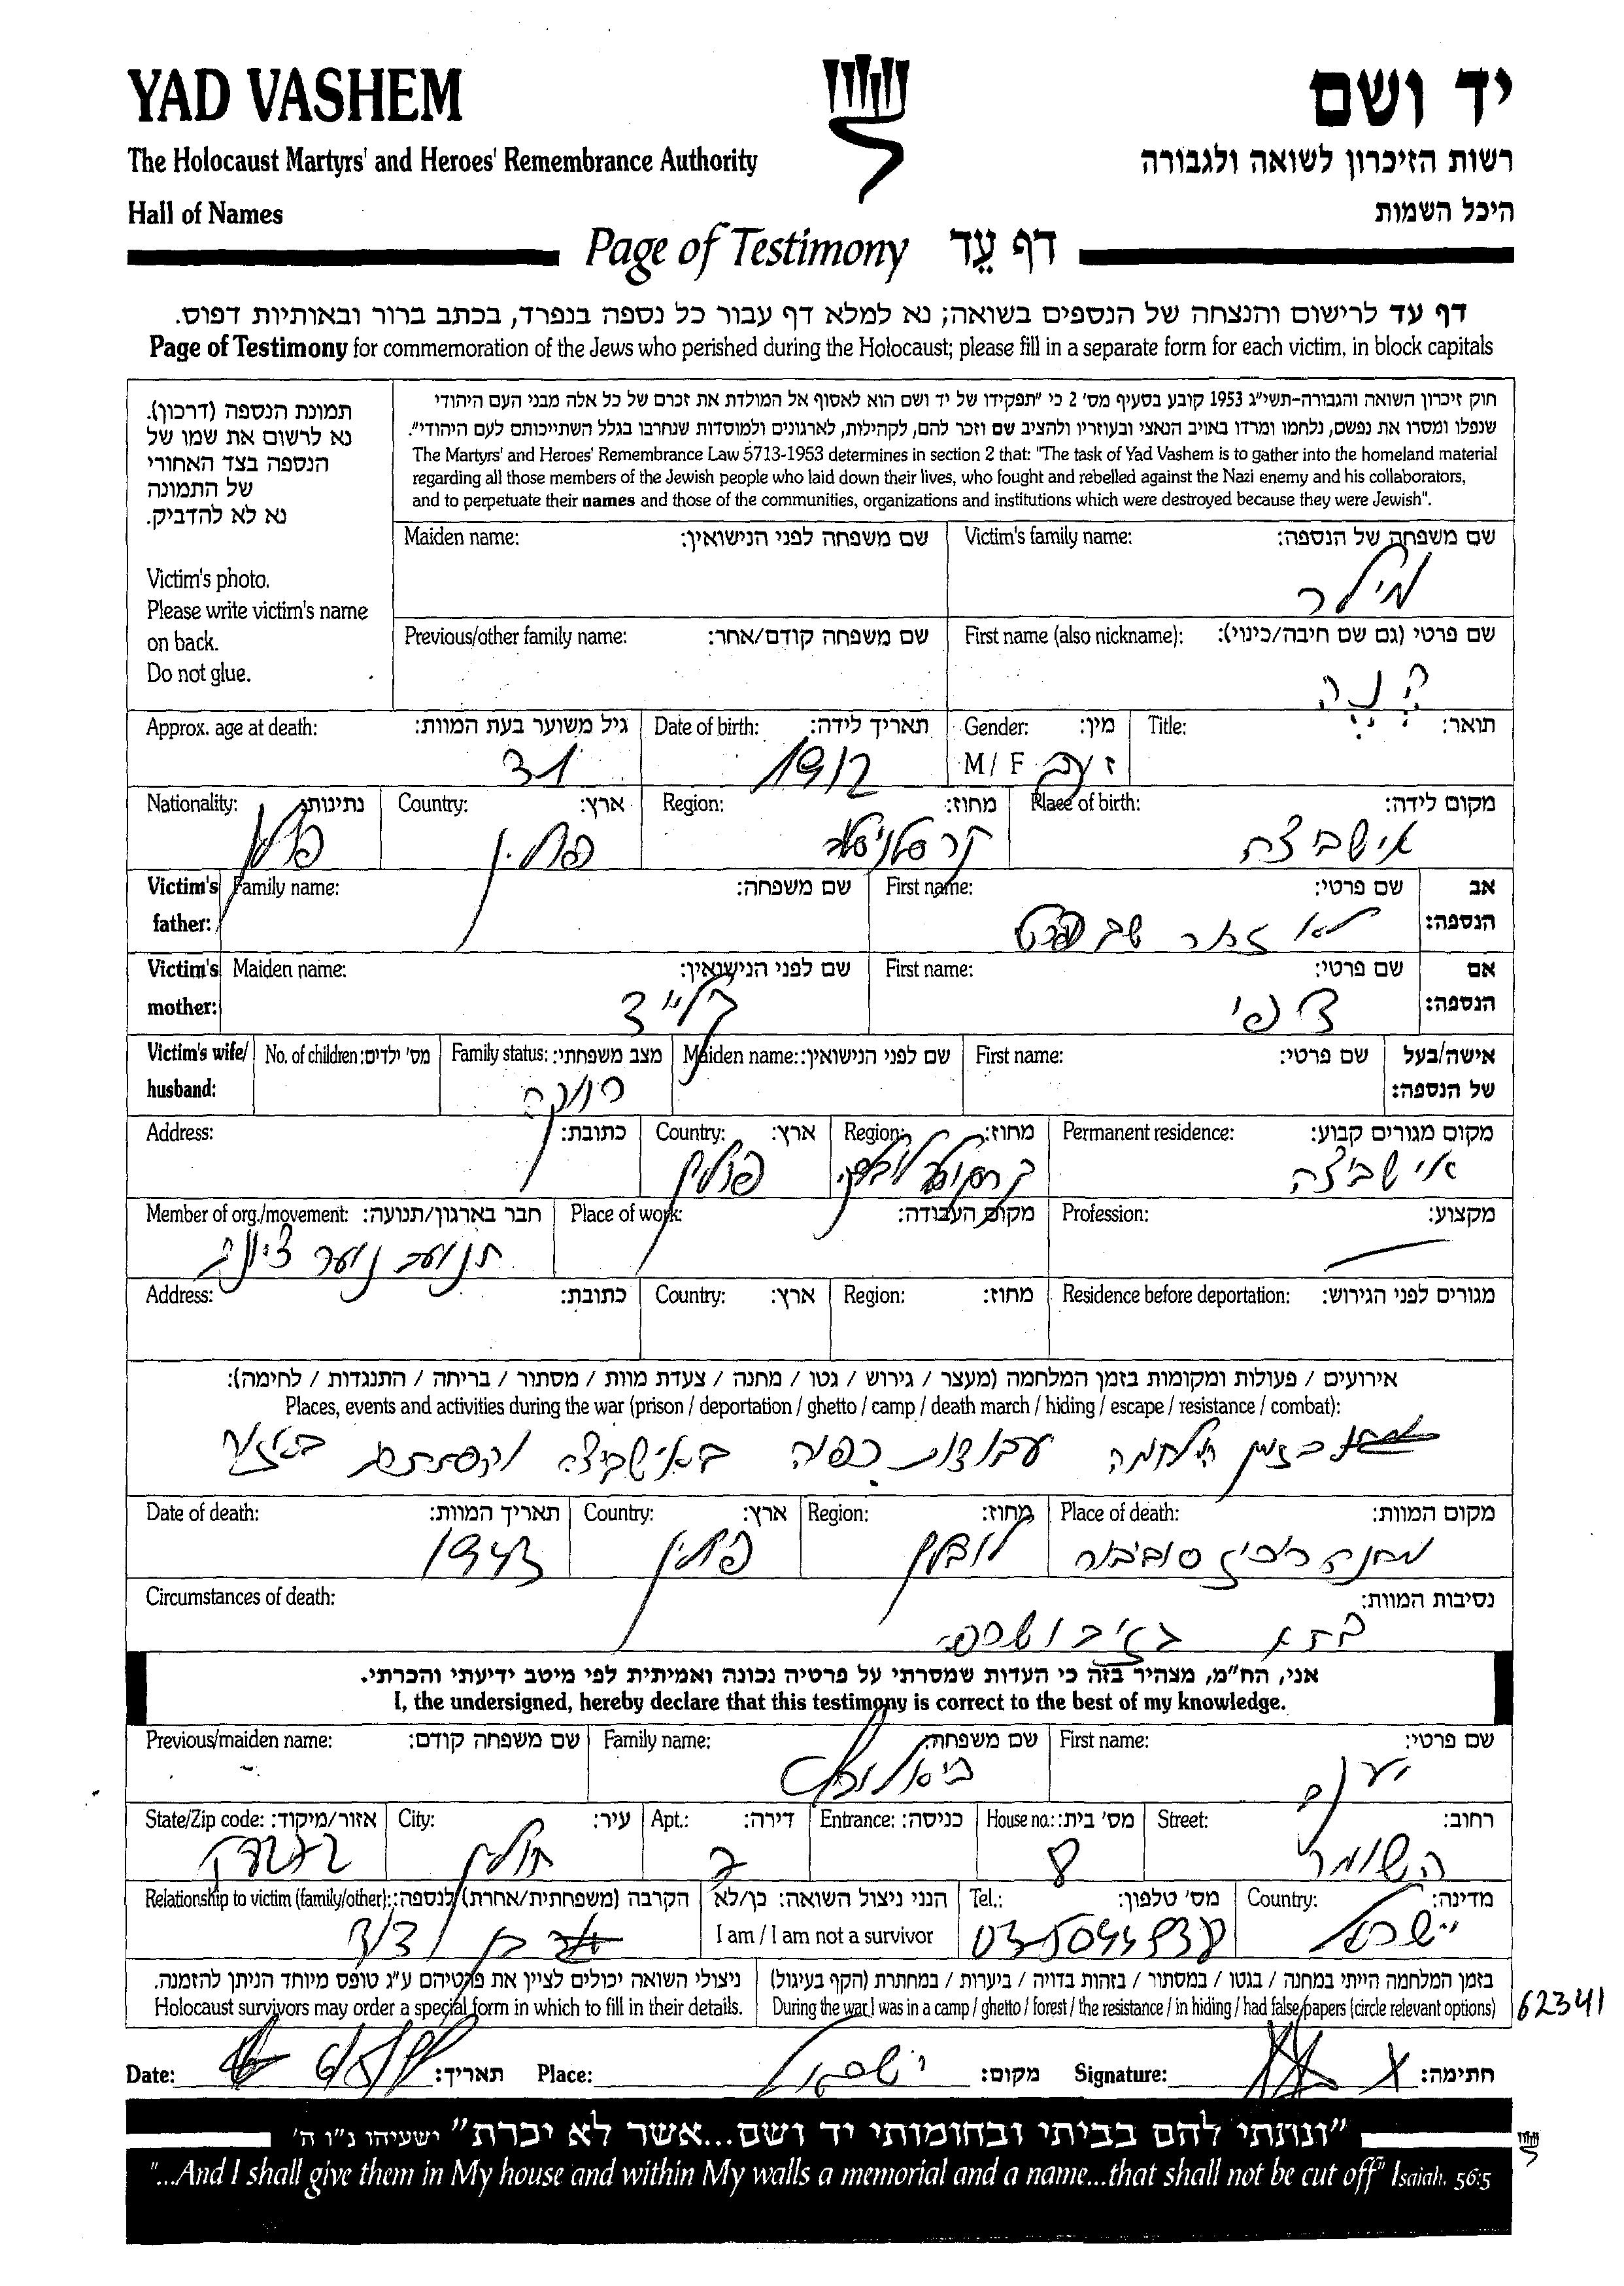 YAD VASHEM
יד ושם
The Holocaust Martyrs' and Heroes' Remembrance Authority
רשות הזיכרון לשואה ולגבורה
Hall of Names
היכל השמות
Page of Testimony דף עֵד
דף עד לרישום והנצחה של הנספים בשואה; נא למלא דף עבור כל נספה בנפרד, בכתב ברור ובאותיות דפוס.
Page of Testimony for commemoration of the Jews who perished during the Holocaust; please fill in a separate form for each victim, in block capitals
תמונת הנספה (דרכון).
נא לרשום את שמו של
הנספה בצד האחורי
של התמונה
נא לא להדביק.
Victim's photo.
Please write victim's name
on back.
Do not glue.
חוק זיכרון השואה והגבורה-תשי"ג 1953 קובע בסעיף מס' 2 כי "תפקידו של יד ושם הוא לאסוף אל המולדת את זכרם של כל אלה מבני העם היהודי
שנפלו ומסרו את נפשם, נלחמו ומרדו באויב הנאצי ובעוזריו ולהציב שם וזכר להם, לקהילות, לארגונים ולמוסדות שנחרבו בגלל השתייכותם לעם היהודי".
The Martyrs' and Heroes' Remembrance Law 5713-1953 determines in section 2 that: "The task of Yad Vashem is to gather into the homeland material
regarding all those members of the Jewish people who laid down their lives, who fought and rebelled against the Nazi enemy and his collaborators,
and to perpetuate their names and those of the communities, organizations and institutions which were destroyed because they were Jewish".
Maiden name: שם משפחה לפני הנישואין:
Victim's family name: שם משפחה של הנספה:
מילר
Previous/other family name: שם משפחה קודם/אחר:
First name (also nickname): שם פרטי (גם שם חיבה/כינוי):
Approx. age at death: גיל משוער בעת המוות:
31
Date of birth: תאריך לידה:
1912
Gender: מין:
M / F
Title: תואר:
Nationality: נתינות:
Country: ארץ:
פולין
Region: מחוז:
Place of birth: מקום לידה:
אישביצה
Victim's father: Family name: שם משפחה:
First name: שם פרטי:
אב הנספה:
Victim's mother: Maiden name: שם לפני הנישואין:
First name: שם פרטי:
אם הנספה:
Victim's wife/ husband:
No. of children: מס' ילדים:
Family status: מצב משפחתי:
רווקה
Maiden name: שם לפני הנישואין:
First name: שם פרטי:
אישה/בעל של הנספה:
Address: כתובת:
Country: ארץ:
פולין
Region: מחוז:
Permanent residence: מקום מגורים קבוע:
אישביצה
Member of org./movement: חבר בארגון/תנועה:
תנועת נוער ציונית
Place of work: מקום העבודה:
Profession: מקצוע:
Address: כתובת:
Country: ארץ:
Region: מחוז:
Residence before deportation: מגורים לפני הגירוש:
אירועים / פעולות ומקומות בזמן המלחמה (מעצר / גירוש / גטו / מחנה / צעדת מוות / מסתור / בריחה / התנגדות / לחימה):
Places, events and activities during the war (prison / deportation / ghetto / camp / death march / hiding / escape / resistance / combat):
בזמן המלחמה עבודות כפיה באישביצה
Date of death: תאריך המוות:
1943
Country: ארץ:
פולין
Region: מחוז:
לובלין
Place of death: מקום המוות:
מחנה ריכוז סוביבור
Circumstances of death: נסיבות המוות:
אני, הח"מ, מצהיר בזה כי העדות שמסרתי על פרטיה נכונה ואמיתית לפי מיטב ידיעתי והכרתי.
I, the undersigned, hereby declare that this testimony is correct to the best of my knowledge.
Previous/maiden name: שם משפחה קודם:
Family name: שם משפחה:
First name: שם פרטי:
יעקב
State/Zip code: אזור/מיקוד:
City: עיר:
חולון
Apt.: דירה:
Entrance: כניסה:
House no.: מס' בית:
8
Street: רחוב:
השומר
Relationship to victim (family/other): הקרבה (משפחתית/אחרת) לנספה:
בן דוד
הנני ניצול השואה: כן/לא
I am / I am not a survivor
Tel.: מס' טלפון:
Country: מדינה:
ישראל
ניצולי השואה יכולים לציין את פרטיהם ע"ג טופס מיוחד הניתן להזמנה.
Holocaust survivors may order a special form in which to fill in their details.
בזמן המלחמה הייתי במחנה / בגטו / במסתור / בזהות בדויה / ביערות / במחתרת (הקף בעיגול)
During the war I was in a camp / ghetto / forest / the resistance / in hiding / had false papers (circle relevant options)
62341
Date: תאריך:
Place: ישראל מקום:
Signature: חתימה:
"ונתתי להם בביתי ובחומותי יד ושם...אשר לא יכרת" ישעיהו נ"ו ה'
"...And I shall give them in My house and within My walls a memorial and a name...that shall not be cut off" Isaiah. 56:5